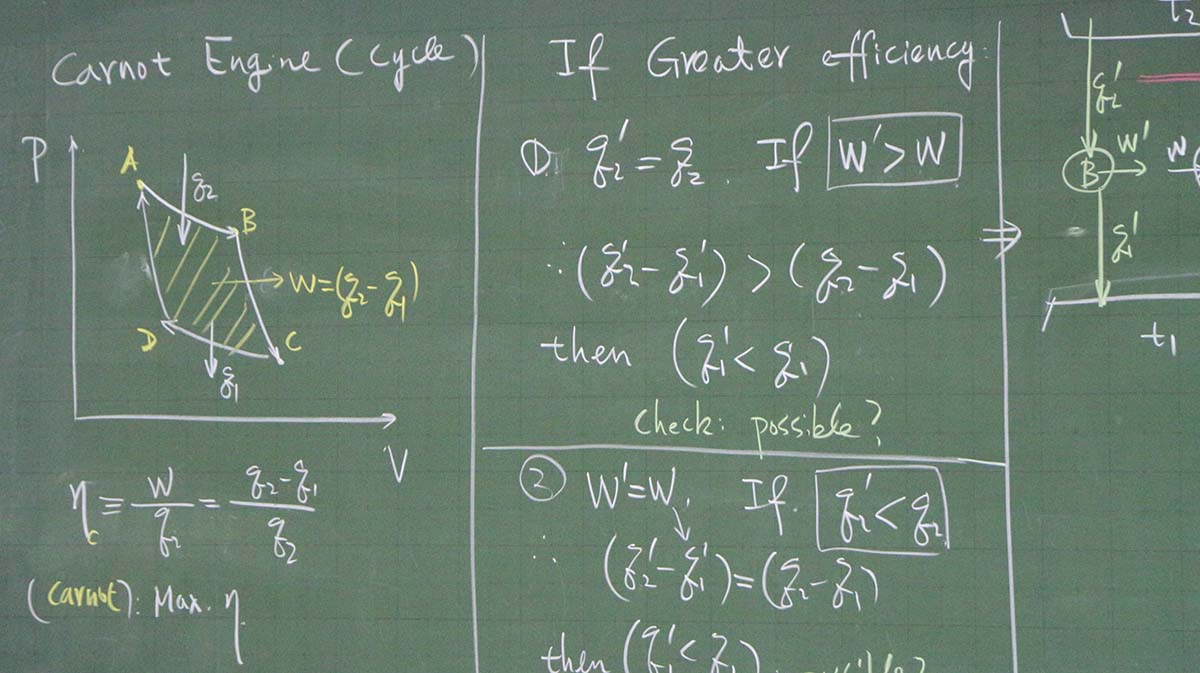 Carnot Engine (Cycle)
P
A
q₂
B
W=(q₂-q₁)
D
C
q₁
V
η_c ≡ W/q₂ = (q₂-q₁)/q₂
(Carnot): Max. η
If Greater efficiency:
① q₂' = q₂. If W' > W
∴ (q₂'-q₁') > (q₂-q₁)
then (q₁' < q₁)
Check: possible?
② W'=W, If q₂' < q₂
∴ (q₂'-q₁') = (q₂-q₁)
then (q₁' < q₁)
⇒
t₂
q₂'
W'
B
W
q₁'
t₁